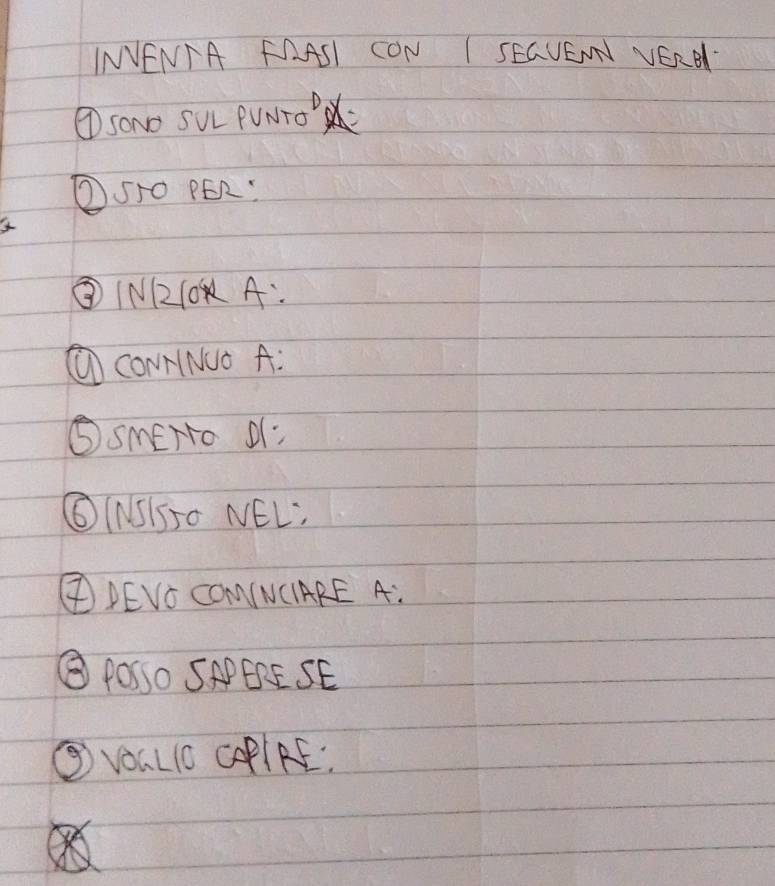 INVENTA FRASI CON I SEGUENTI VERBI:
① SONO SUL PUNTO D:
② STO PER:
③ INIZIO A:
④ CONTINUO A:
⑤ SMETTO DI:
⑥ INSISTO NEL:
⑦ DEVO COMINCIARE A:
⑧ POSSO SAPERE SE
⑨ VOGLIO CAPIRE: